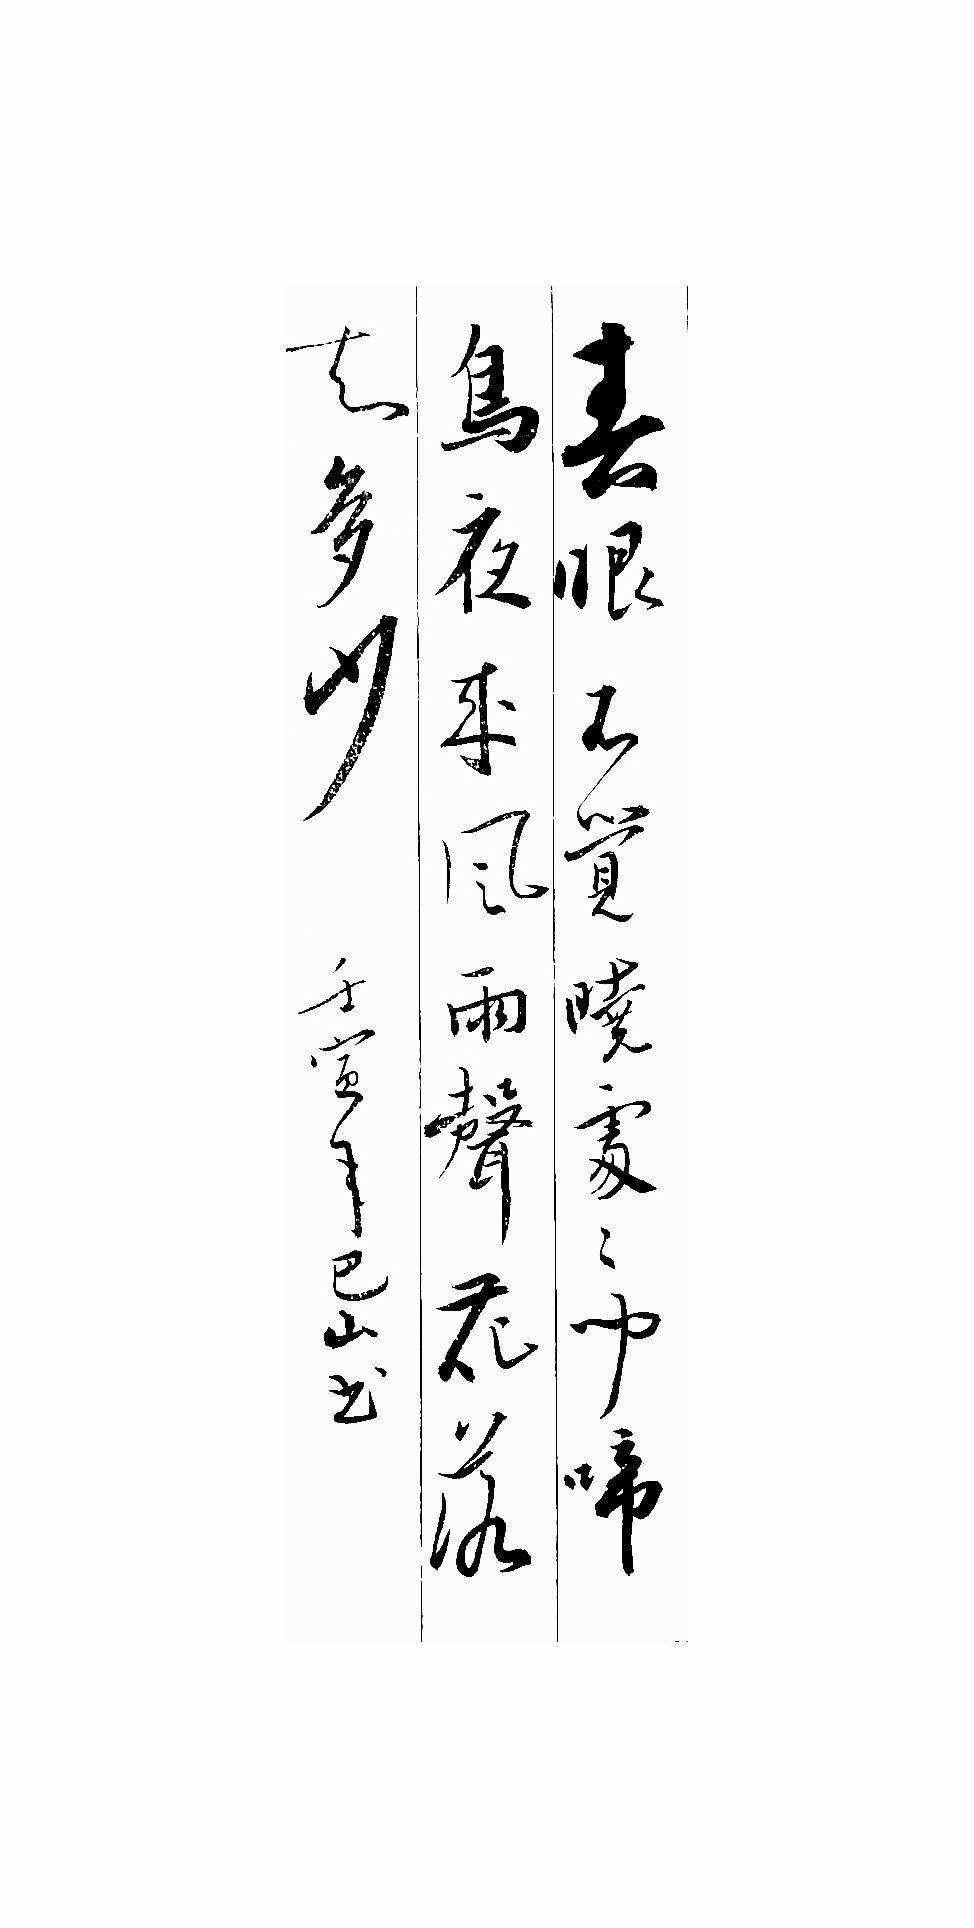 春眠不覺曉處々聞啼
鳥夜來風雨聲花落
知多少
壬寅年巴山书